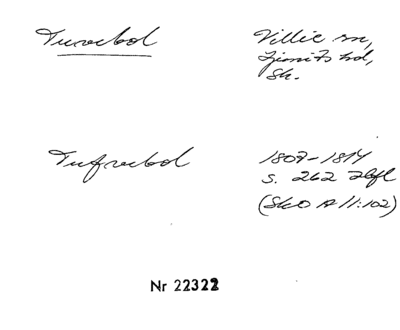 Turebol
Villie sn,
Ljunits hd,
Sk.
Tufvebol
1807-1814
s. 262 Abfl
(SkO A II:102)
Nr 22322